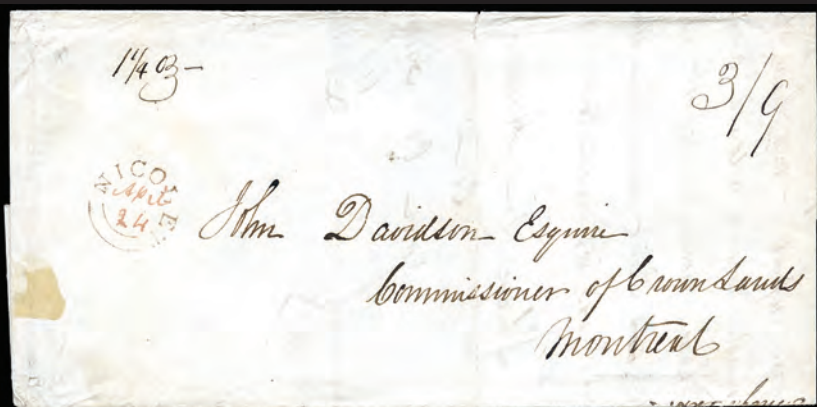 1 1/4 oz –
3/9
NICOLET
April
24
John Davidson Esquire
Commissioner of Crown Lands
Montreal